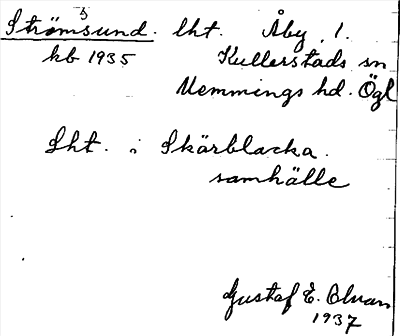 Strömsund. lht. Åby 1.
kb 1935 Kullerstads sn
Memmings hd. Ögl
Lht. i Skärblacka.
samhälle
Gustaf E.
1937